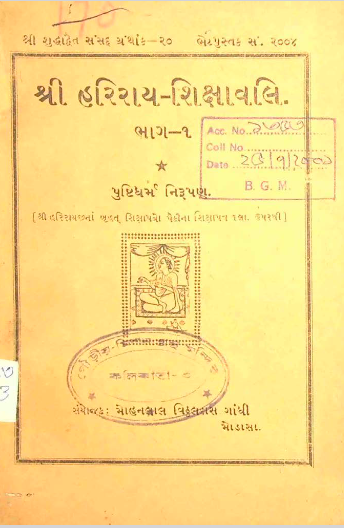 શ્રી શુદ્ધાદ્વૈત સંસદ ગ્રંથાંક—૨૦ ભેટપુસ્તક સં. ૨૦૦૪
શ્રી હરિરાય-શિક્ષાવલિ.
ભાગ—૧
Acc. No.
Coll No
Date
B. G. M.
પુષ્ટિધર્મ નિરૂપણ.
(શ્રી હરિરાયજીનાં બૃહત્ શિક્ષાપત્રો પૈકીના શિક્ષાપત્ર ૧લા. ઉપરથી)
કલિકાતા - ૮
સંયોજક: મોહનલાલ વિઠ્ઠલદાસ ગાંધી
મોડાસા.